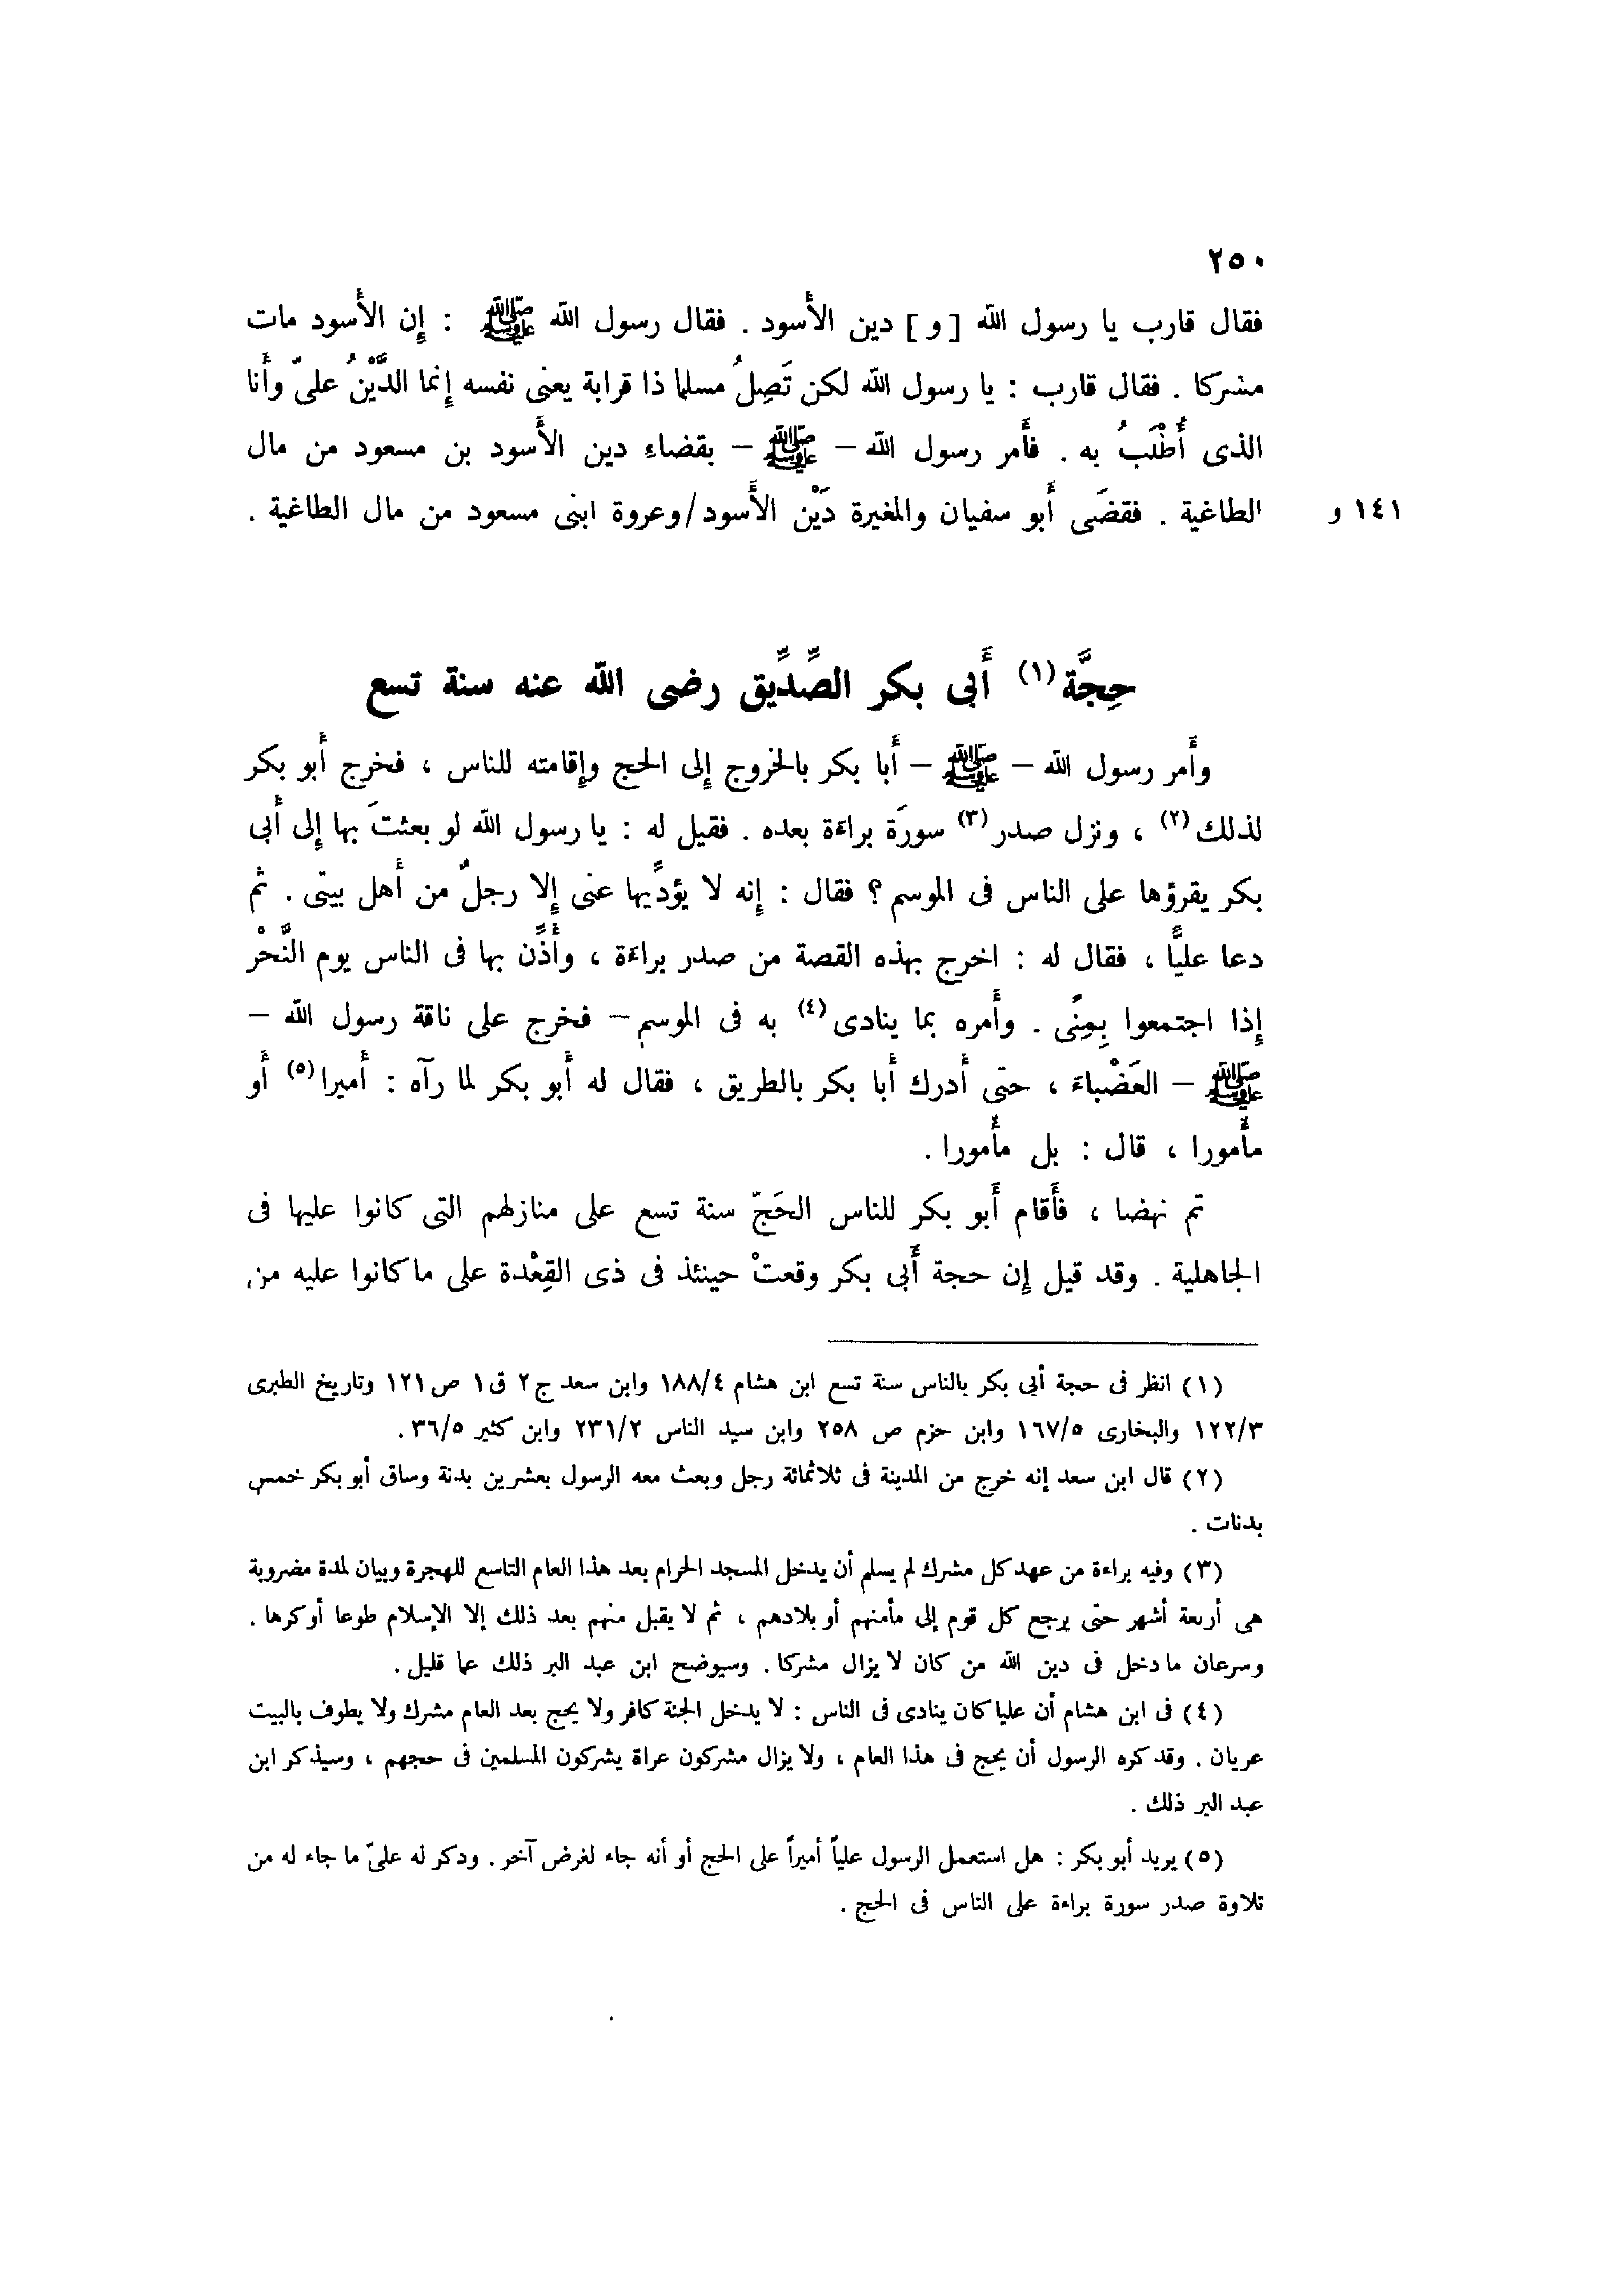 ٢٥٠
فقال قارب يا رسول الله [و] دين الأسود . فقال رسول الله ﷺ : إن الأسود مات
مشركا . فقال قارب : يا رسول الله لكن تَصِلُ مسلما ذا قرابة يعنى نفسه إنما الدَّيْنُ علىّ وأنا
الذى أُطْلَبُ به . فأمر رسول الله – ﷺ – بقضاء دين الأسود بن مسعود من مال
١٤١ و الطاغية . فقضَى أبو سفيان والمغيرة دَيْن الأسود/وعروة ابنى مسعود من مال الطاغية .
حِجَّة (١) أبى بكر الصِّدِّيق رضى الله عنه سنة تسع
وأمر رسول الله – ﷺ – أبا بكر بالخروج إلى الحج وإقامته للناس ، فخرج أبو بكر
لذلك (٢) ، ونزل صدر (٣) سورَة براءة بعده . فقيل له : يا رسول الله لو بعثتَ بها إلى أبى
بكر يقرؤها على الناس فى الموسم ؟ فقال : إنه لا يؤدِّيها عنى إلا رجلٌ من أهل بيتى . ثم
دعا عليًّا ، فقال له : اخرج بهذه القصة من صدر براءة ، وأَذِّن بها فى الناس يوم النَّحْر
إذا اجتمعوا بِمِنًى . وأمره بما ينادى (٤) به فى الموسم – فخرج على ناقة رسول الله –
ﷺ – العَضْباءَ ، حتى أدرك أبا بكر بالطريق ، فقال له أبو بكر لما رآه : أميرا (٥) أو
مأمورا ، قال : بل مأمورا .
تم نهضا ، فأقام أبو بكر للناس الحَجّ سنة تسع على منازلهم التى كانوا عليها فى
الجاهلية . وقد قيل إن حجة أبى بكر وقعتْ حينئذ فى ذى القِعْدة على ما كانوا عليه من
(١) انظر فى حجة أبى بكر بالناس سنة تسع ابن هشام ١٨٨/٤ وابن سعد ج ٢ ق ١ ص ١٢١ وتاريخ الطبرى
١٢٢/٣ والبخارى ١٦٧/٥ وابن حزم ص ٢٥٨ وابن سيد الناس ٢٣١/٢ وابن كثير ٣٦/٥ .
(٢) قال ابن سعد إنه خرج من المدينة فى ثلاثمائة رجل وبعث معه الرسول بعشرين بدنة وساق أبو بكر خمس
بدنات .
(٣) وفيه براءة من عهد كل مشرك لم يسلم أن يدخل المسجد الحرام بعد هذا العام التاسع للهجرة وبيان لمدة مضروبة
هى أربعة أشهر حتى يرجع كل قوم إلى مأمنهم أو بلادهم ، ثم لا يقبل منهم بعد ذلك إلا الإسلام طوعا أو كرها .
وسرعان ما دخل فى دين الله من كان لا يزال مشركا . وسيوضح ابن عبد البر ذلك عما قليل .
(٤) فى ابن هشام أن عليا كان ينادى فى الناس : لا يدخل الجنة كافر ولا يحج بعد العام مشرك ولا يطوف بالبيت
عريان . وقد كره الرسول أن يحج فى هذا العام ، ولا يزال مشركون عراة يشركون المسلمين فى حجهم ، وسيذكر ابن
عبد البر ذلك .
(٥) يريد أبو بكر : هل استعمل الرسول علياً أميراً على الحج أو أنه جاء لغرض آخر . ودكر له علىّ ما جاء له من
تلاوة صدر سورة براءة على الناس فى الحج .